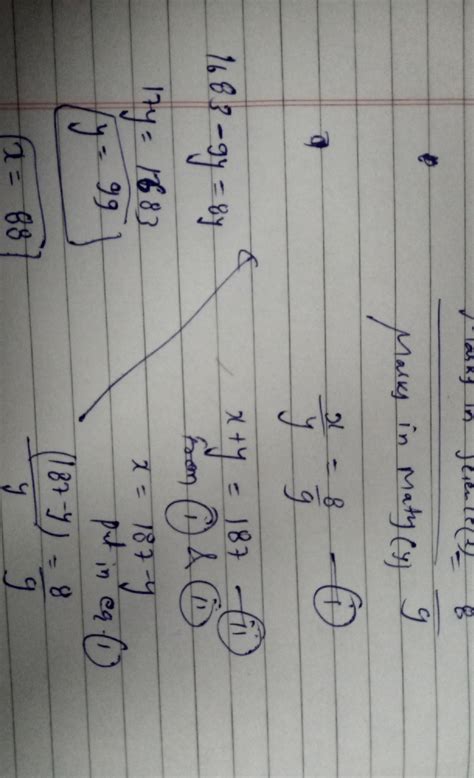 Marks in Science(x) = 8
Marks in Maty(y) 9
x/y = 8/9 — (i)
x+y = 187 — (ii)
from (i) & (ii)
x = 187-y
put in eq. (i)
(187-y)/y = 8/9
1683-9y = 8y
17y = 1683
y = 99
x = 88